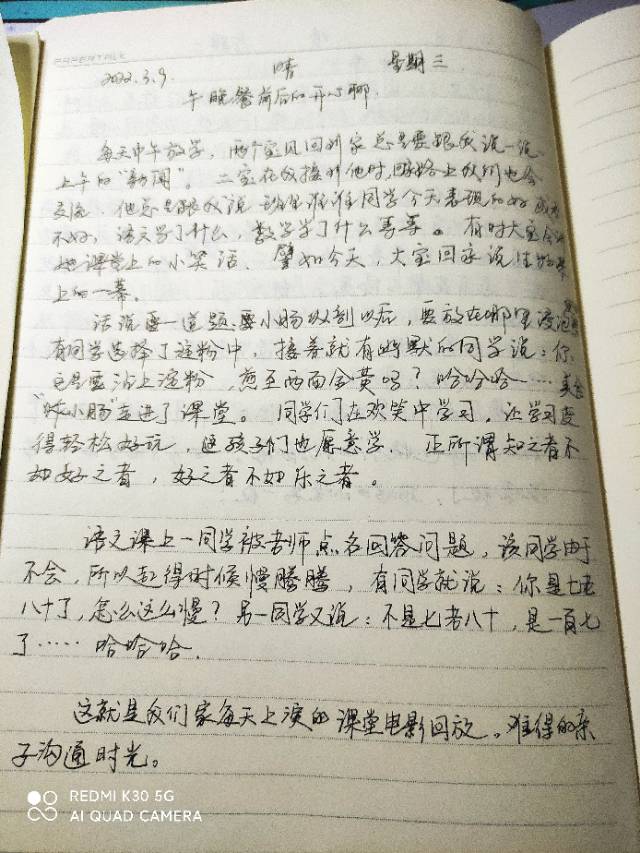 PAPERTALK
2022.3.9. 晴 星期三
午晚餐前后的开心聊.
每天中午放学，两个宝贝回到家总是要跟我说一说
上午的"新闻"。二宝在我接到他时，回路上我们也会
交流. 他总是跟我说 班里谁谁同学今天表现的好
不好，语文学了什么，数学学了什么等等。有时大宝会
课堂上的小笑话. 譬如今天，大宝回家说生物课
上的一幕.
话说要一道题:要小肠 剖以后，要放在哪里浸泡
有同学选择了淀粉中，接着就有幽默的同学说：你
是要沾上淀粉，煎至两面金黄吗？哈哈哈……
"炸小肠"走进了课堂。同学们在欢笑中学习，还学习
得轻松好玩，这孩子们也愿意学. 正所谓知之者不
如好之者，好之者不如乐之者。
语文课上一同学被老师点名回答问题，该同学由于
不会，所以起得时候慢腾腾，有同学就说：你是七老
八十了，怎么这么慢？另一同学又说：不是七老八十，是一百七
了…… 哈哈哈.
这就是我们家每天上演的课堂电影回放。难得的亲
子沟通时光。
REDMI K30 5G
AI QUAD CAMERA